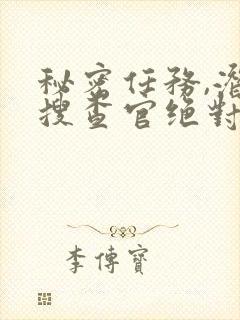 秘密任務,潛
搜查官绝對
李傳寶